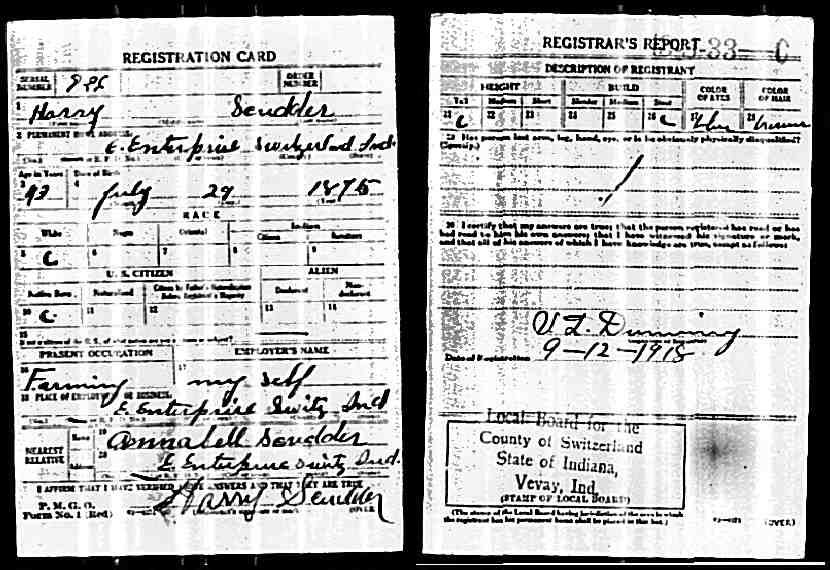 REGISTRATION CARD
SERIAL NUMBER
ORDER NUMBER
1 Harry Scudder
2 PERMANENT HOME ADDRESS
E. Enterprise Switzerland Ind.
Age in Years Date of Birth
3 4
July 29 1875
RACE
White Negro Oriental Indian
Citizen
5 c 6 7 8 9
U. S. CITIZEN ALIEN
Native Born Naturalized Citizen by Father's Naturalization Before Registrant's Majority Declarant Non-declarant
10 c 11 12 13 14
15
PRESENT OCCUPATION EMPLOYER'S NAME
16 17
Farming my self
18 PLACE OF EMPLOYMENT OR BUSINESS
E. Enterprise Switz Ind
NEAREST RELATIVE
Name 19 Annabell Scudder
Address 20 E. Enterprise Switz Ind.
I AFFIRM THAT I HAVE VERIFIED ABOVE ANSWERS AND THAT THEY ARE TRUE
P. M. G. O.
Form No. 1 (Red)
Harry Scudder
(OVER)
REGISTRAR'S REPORT
C
DESCRIPTION OF REGISTRANT
HEIGHT BUILD COLOR OF EYES COLOR OF HAIR
Tall Medium Short Slender Medium Stout
21 c 22 23 24 25 26 c 27 blue 28 brown
29 Has person lost arm, leg, hand, eye, or is he obviously physically disqualified?
(Specify.)
30 I certify that my answers are true; that the person registered has read or has
had read to him his own answers; that I have witnessed his signature or mark,
and that all of his answers of which I have knowledge are true, except as follows:
Date of Registration 9-12-1918
Local Board for the
County of Switzerland
State of Indiana,
Vevay, Ind.
(STAMP OF LOCAL BOARD)
(The stamp of the Local Board having jurisdiction of the area in which
the registrant has his permanent home shall be placed in this box.)
(OVER)